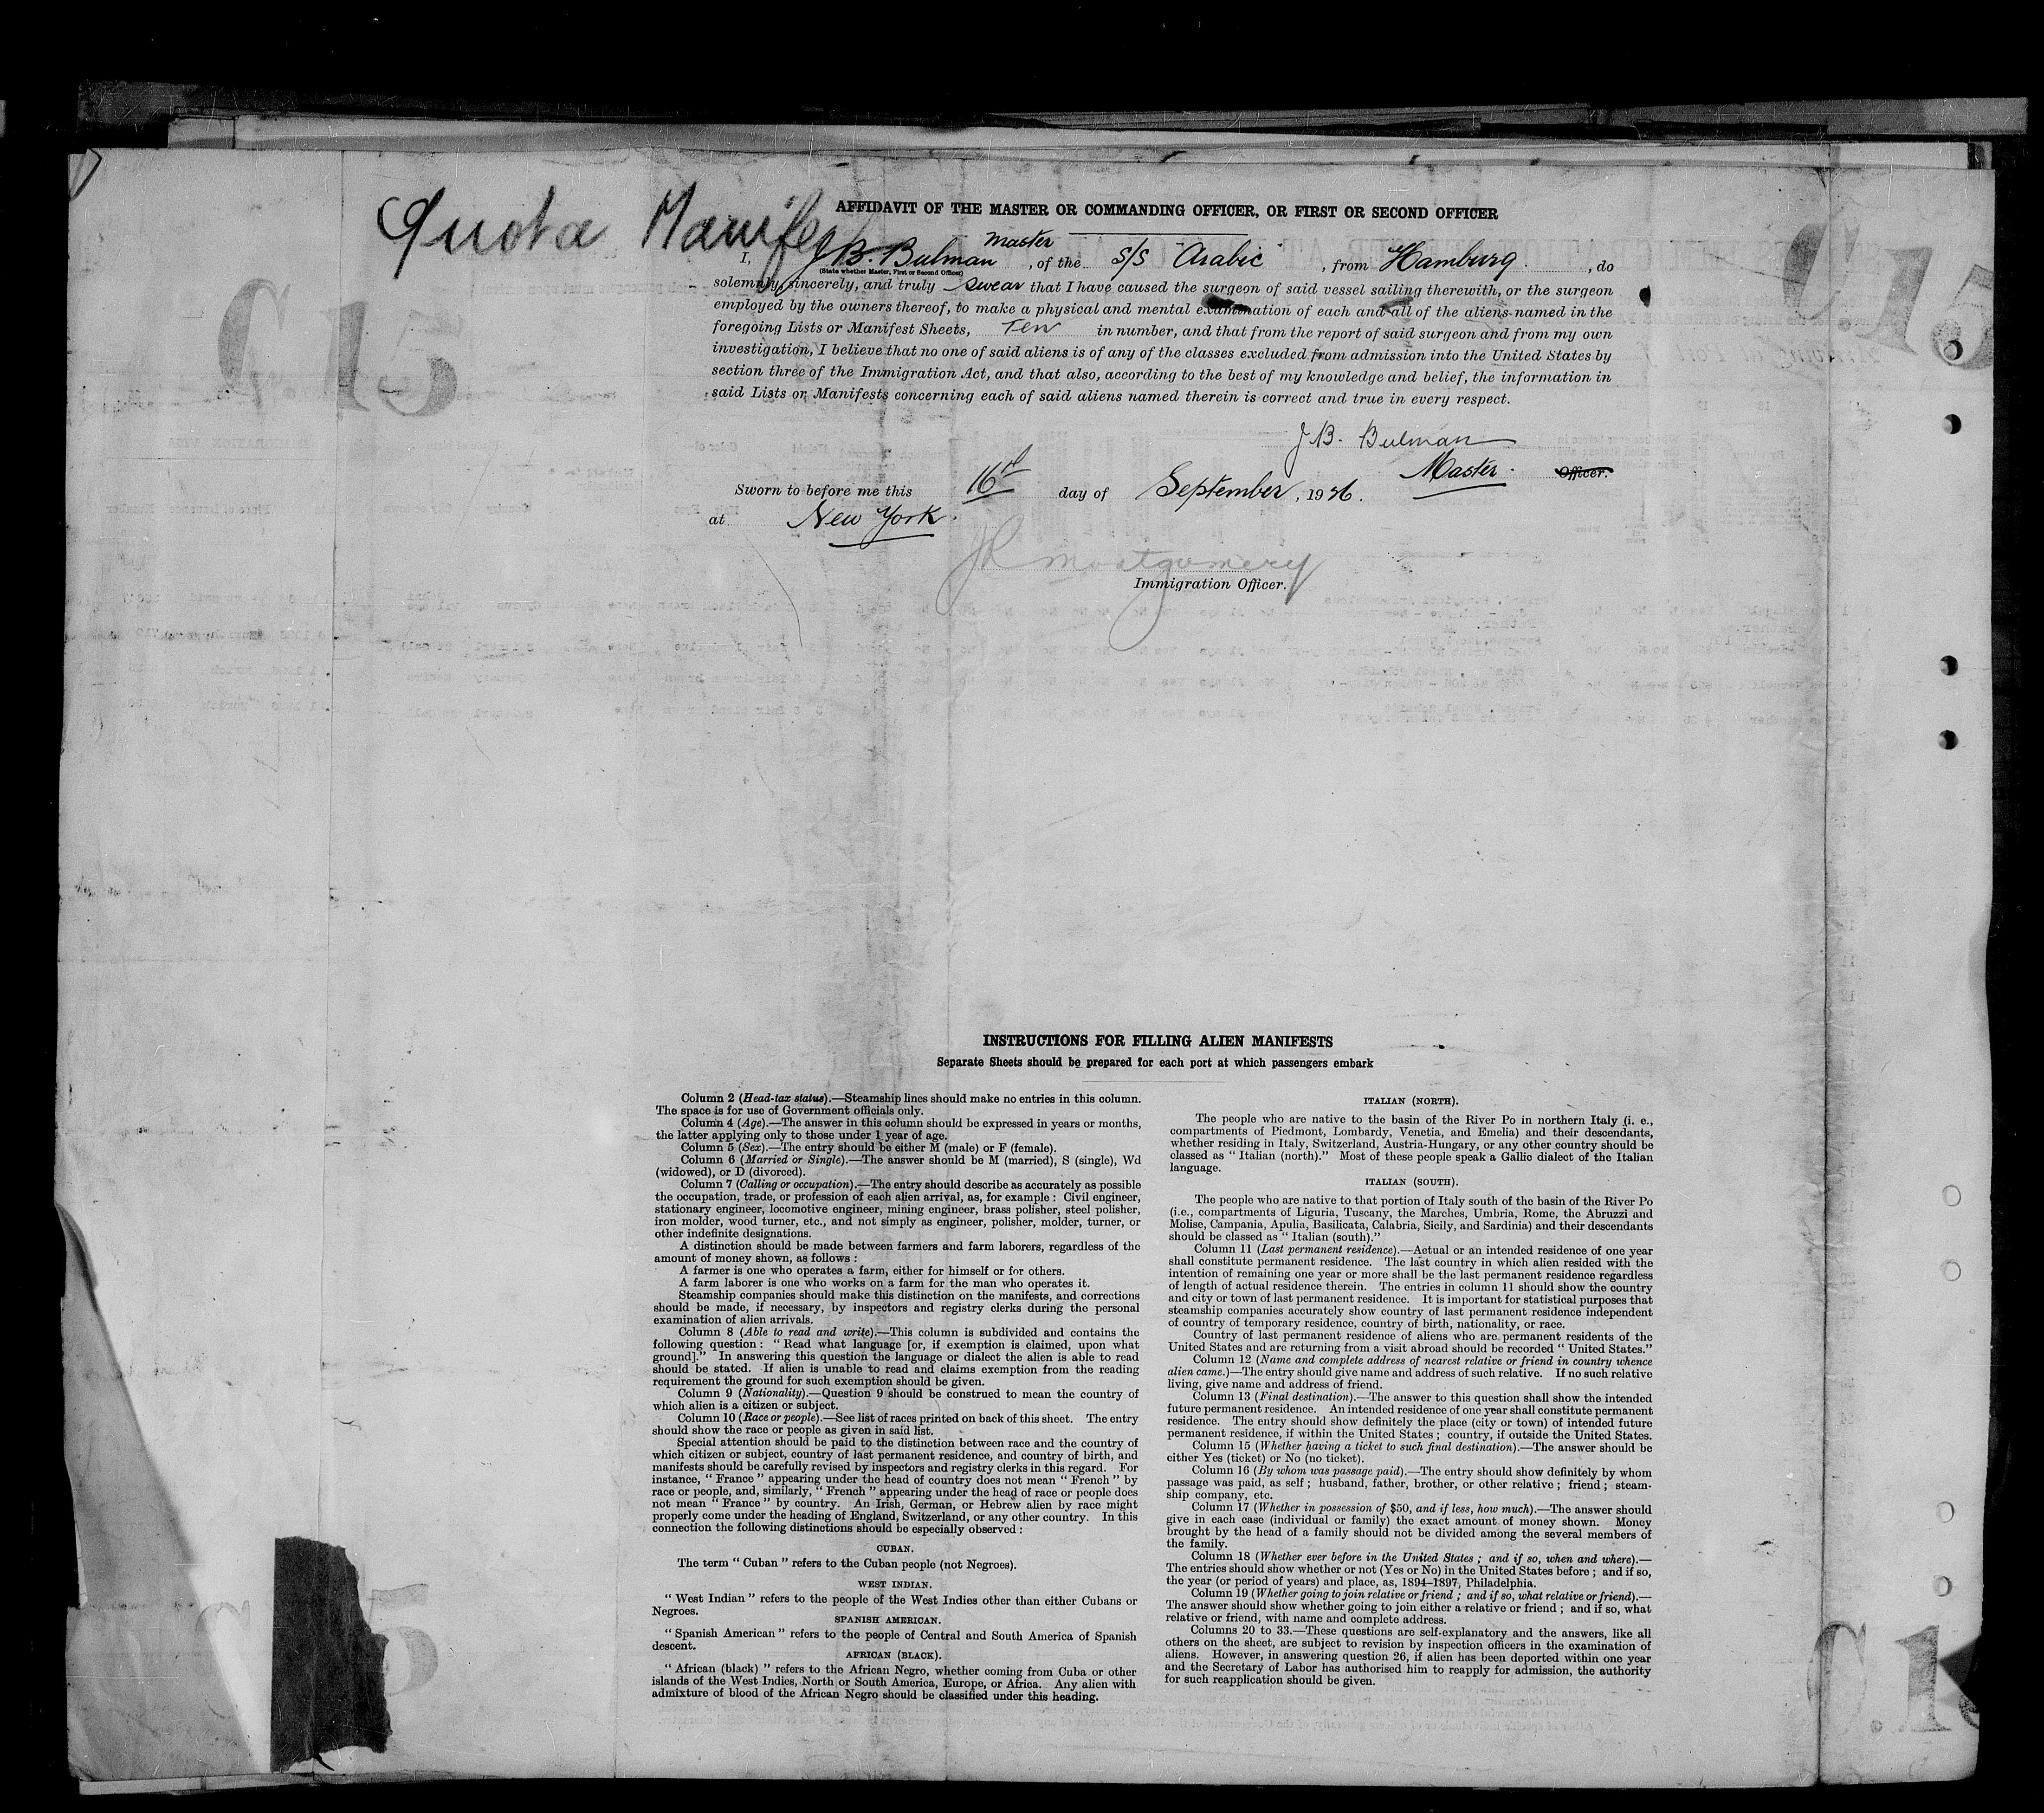 Quota Manifes
C 15
C 15
AFFIDAVIT OF THE MASTER OR COMMANDING OFFICER, OR FIRST OR SECOND OFFICER
I, J B. Bulman Master, of the S/S Arabic, from Hamburg, do
(State whether Master, First or Second Officer)
solemnly, sincerely, and truly swear that I have caused the surgeon of said vessel sailing therewith, or the surgeon
employed by the owners thereof, to make a physical and mental examination of each and all of the aliens named in the
foregoing Lists or Manifest Sheets, Ten in number, and that from the report of said surgeon and from my own
investigation, I believe that no one of said aliens is of any of the classes excluded from admission into the United States by
section three of the Immigration Act, and that also, according to the best of my knowledge and belief, the information in
said Lists or Manifests concerning each of said aliens named therein is correct and true in every respect.
J B. Bulman
Master. Officer.
Sworn to before me this 16th day of September, 1926.
at New York.
Montgomery
Immigration Officer.
INSTRUCTIONS FOR FILLING ALIEN MANIFESTS
Separate Sheets should be prepared for each port at which passengers embark
Column 2 (Head-tax status).—Steamship lines should make no entries in this column.
The space is for use of Government officials only.
Column 4 (Age).—The answer in this column should be expressed in years or months,
the latter applying only to those under 1 year of age.
Column 5 (Sex).—The entry should be either M (male) or F (female).
Column 6 (Married or Single).—The answer should be M (married), S (single), Wd
(widowed), or D (divorced).
Column 7 (Calling or occupation).—The entry should describe as accurately as possible
the occupation, trade, or profession of each alien arrival, as, for example : Civil engineer,
stationary engineer, locomotive engineer, mining engineer, brass polisher, steel polisher,
iron molder, wood turner, etc., and not simply as engineer, polisher, molder, turner, or
other indefinite designations.
A distinction should be made between farmers and farm laborers, regardless of the
amount of money shown, as follows :
A farmer is one who operates a farm, either for himself or for others.
A farm laborer is one who works on a farm for the man who operates it.
Steamship companies should make this distinction on the manifests, and corrections
should be made, if necessary, by inspectors and registry clerks during the personal
examination of alien arrivals.
Column 8 (Able to read and write).—This column is subdivided and contains the
following question : " Read what language [or, if exemption is claimed, upon what
ground]." In answering this question the language or dialect the alien is able to read
should be stated. If alien is unable to read and claims exemption from the reading
requirement the ground for such exemption should be given.
Column 9 (Nationality).—Question 9 should be construed to mean the country of
which alien is a citizen or subject.
Column 10 (Race or people).—See list of races printed on back of this sheet. The entry
should show the race or people as given in said list.
Special attention should be paid to the distinction between race and the country of
which citizen or subject, country of last permanent residence, and country of birth, and
manifests should be carefully revised by inspectors and registry clerks in this regard. For
instance, " France " appearing under the head of country does not mean " French " by
race or people, and, similarly, " French " appearing under the head of race or people does
not mean " France " by country. An Irish, German, or Hebrew alien by race might
properly come under the heading of England, Switzerland, or any other country. In this
connection the following distinctions should be especially observed :
CUBAN.
The term " Cuban " refers to the Cuban people (not Negroes).
WEST INDIAN.
" West Indian " refers to the people of the West Indies other than either Cubans or
Negroes.
SPANISH AMERICAN.
" Spanish American " refers to the people of Central and South America of Spanish
descent.
AFRICAN (BLACK).
" African (black) " refers to the African Negro, whether coming from Cuba or other
islands of the West Indies, North or South America, Europe, or Africa. Any alien with
admixture of blood of the African Negro should be classified under this heading.
ITALIAN (NORTH).
The people who are native to the basin of the River Po in northern Italy (i. e.,
compartments of Piedmont, Lombardy, Venetia, and Emelia) and their descendants,
whether residing in Italy, Switzerland, Austria-Hungary, or any other country should be
classed as " Italian (north)." Most of these people speak a Gallic dialect of the Italian
language.
ITALIAN (SOUTH).
The people who are native to that portion of Italy south of the basin of the River Po
(i.e., compartments of Liguria, Tuscany, the Marches, Umbria, Rome, the Abruzzi and
Molise, Campania, Apulia, Basilicata, Calabria, Sicily, and Sardinia) and their descendants
should be classed as " Italian (south)."
Column 11 (Last permanent residence).—Actual or an intended residence of one year
shall constitute permanent residence. The last country in which alien resided with the
intention of remaining one year or more shall be the last permanent residence regardless
of length of actual residence therein. The entries in column 11 should show the country
and city or town of last permanent residence. It is important for statistical purposes that
steamship companies accurately show country of last permanent residence independent
of country of temporary residence, country of birth, nationality, or race.
Country of last permanent residence of aliens who are permanent residents of the
United States and are returning from a visit abroad should be recorded " United States."
Column 12 (Name and complete address of nearest relative or friend in country whence
alien came.)—The entry should give name and address of such relative. If no such relative
living, give name and address of friend.
Column 13 (Final destination).—The answer to this question shall show the intended
future permanent residence. An intended residence of one year shall constitute permanent
residence. The entry should show definitely the place (city or town) of intended future
permanent residence, if within the United States ; country, if outside the United States.
Column 15 (Whether having a ticket to such final destination).—The answer should be
either Yes (ticket) or No (no ticket).
Column 16 (By whom was passage paid).—The entry should show definitely by whom
passage was paid, as self ; husband, father, brother, or other relative ; friend ; steam-
ship company, etc.
Column 17 (Whether in possession of $50, and if less, how much).—The answer should
give in each case (individual or family) the exact amount of money shown. Money
brought by the head of a family should not be divided among the several members of
the family.
Column 18 (Whether ever before in the United States ; and if so, when and where).—
The entries should show whether or not (Yes or No) in the United States before ; and if so,
the year (or period of years) and place, as, 1894–1897, Philadelphia.
Column 19 (Whether going to join relative or friend ; and if so, what relative or friend).—
The answer should show whether going to join either a relative or friend ; and if so, what
relative or friend, with name and complete address.
Columns 20 to 33.—These questions are self-explanatory and the answers, like all
others on the sheet, are subject to revision by inspection officers in the examination of
aliens. However, in answering question 26, if alien has been deported within one year
and the Secretary of Labor has authorised him to reapply for admission, the authority
for such reapplication should be given.
C.1